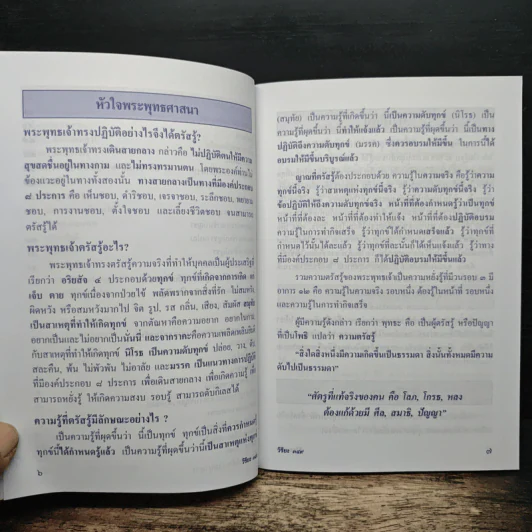 หัวใจพระพุทธศาสนา
พระพุทธเจ้าทรงปฏิบัติอย่างไรจึงได้ตรัสรู้?
พระพุทธเจ้าทรงเดินสายกลาง กล่าวคือ ไม่ปฏิบัติตนให้มีความ
สุขสดชื่นอยู่ในทางกาม และไม่ทรงทรมานตน โดยพระองค์ท่านไม่
ข้องแวะอยู่ในทางทั้งสองนั้น ทางสายกลางเป็นทางที่มีองค์ประกอบ
๘ ประการ คือ เห็นชอบ, ดำริชอบ, เจรจาชอบ, ระลึกชอบ, พยายาม
ชอบ, การงานชอบ, ตั้งใจชอบ และเลี้ยงชีวิตชอบ จนสามารถ
ตรัสรู้ได้
พระพุทธเจ้าตรัสรู้อะไร?
พระพุทธเจ้าทรงตรัสรู้ความจริงที่ทำให้บุคคลเป็นผู้ประเสริฐ
เรียกว่า อริยสัจ ๔ ประกอบด้วยทุกข์ ทุกข์ที่เกิดจากการเกิด แก่
เจ็บ ตาย ทุกข์เนื่องจากป่วยไข้ พลัดพรากจากสิ่งที่รัก ไม่สมหวัง
ผิดหวัง หรือสมหวังมากไป จิต รูป, รส กลิ่น, เสียง, สัมผัส สมุทัย
เป็นสาเหตุที่ทำให้เกิดทุกข์ จากตัณหาคือความอยาก อยากในกาม
อยากเป็นและไม่อยากเป็นนั่นนี่ และจากราคะคือความเพลิดเพลินยินดี
กับสาเหตุที่ทำให้เกิดทุกข์ นิโรธ เป็นความดับทุกข์ ปล่อย, วาง, ดับ,
สละคืน, พ้น ไม่พัวพัน ไม่อาลัย และมรรค เป็นแนวทางการปฏิบัติ
ที่มีองค์ประกอบ ๘ ประการ เพื่อเดินสายกลาง เพื่อเกิดความรู้ เพื่อ
สามารถหยั่งรู้ ให้เกิดความสงบ รอบรู้ สามารถดับกิเลสได้
ความรู้ที่ตรัสรู้มีลักษณะอย่างไร ?
เป็นความรู้ที่ผุดขึ้นว่า นี้เป็นทุกข์ ทุกข์เป็นสิ่งที่ควรกำหนดรู้
ทุกข์นี้ได้กำหนดรู้แล้ว เป็นความรู้ที่ผุดขึ้นว่านี้เป็นสาเหตุแห่งทุกข์
๖
(สมุทัย) เป็นความรู้ที่เกิดขึ้นว่า นี้เป็นความดับทุกข์ (นิโรธ) เป็น
ความรู้ที่ผุดขึ้นว่า นี้ทำให้แจ้งแล้ว เป็นความรู้ที่ผุดขึ้นว่า นี้เป็นทาง
ปฏิบัติถึงความดับทุกข์ (มรรค) ซึ่งควรอบรมให้มีขึ้น ในการนี้ได้
อบรมให้มีขึ้นบริบูรณ์แล้ว
ญาณที่ตรัสรู้ต้องประกอบด้วย ความรู้ในความจริง คือรู้ว่าความ
ทุกข์นี้จริง รู้ว่าสาเหตุแห่งทุกข์นี้จริง รู้ว่าความดับทุกข์นี้จริง รู้ว่า
ข้อปฏิบัติให้ถึงความดับทุกข์นี้จริง หน้าที่ที่ต้องกำหนดรู้ว่าเป็นทุกข์
หน้าที่ที่ต้องละ หน้าที่ที่ต้องทำให้แจ้ง หน้าที่ที่ต้องปฏิบัติอบรม
ความรู้ในการทำกิจเสร็จ รู้ว่าทุกข์ได้กำหนดเสร็จแล้ว รู้ว่าทุกข์ที่
กำหนดไว้นั้นได้ละแล้ว รู้ว่าทุกข์ที่ละนั้นก็ได้เห็นแจ้งแล้ว รู้ว่าทาง
ที่มีองค์ประกอบ ๘ ประการ ก็ได้ปฏิบัติอบรมให้มีขึ้นแล้ว
รวมความตรัสรู้ของพระพุทธเจ้าเป็นความหยั่งรู้ที่มีวนรอบ ๓ มี
อาการ ๑๒ คือ ความรู้ในความจริง รอบหนึ่ง ต้องรู้ในหน้าที่ รอบหนึ่ง
และความรู้ในการทำกิจเสร็จ
ผู้มีความรู้ดังกล่าว เรียกว่า พุทธะ คือ เป็นผู้ตรัสรู้ หรือปัญญา
ที่เป็นโพธิ แปลว่า ความตรัสรู้
"สิ่งใดสิ่งหนึ่งมีความเกิดขึ้นเป็นธรรมดา สิ่งนั้นทั้งหมดมีความ
ดับไปเป็นธรรมดา"
"ศัตรูที่แท้จริงของคน คือ โลภ, โกรธ, หลง
ต้องแก้ด้วยมี ศีล, สมาธิ, ปัญญา"